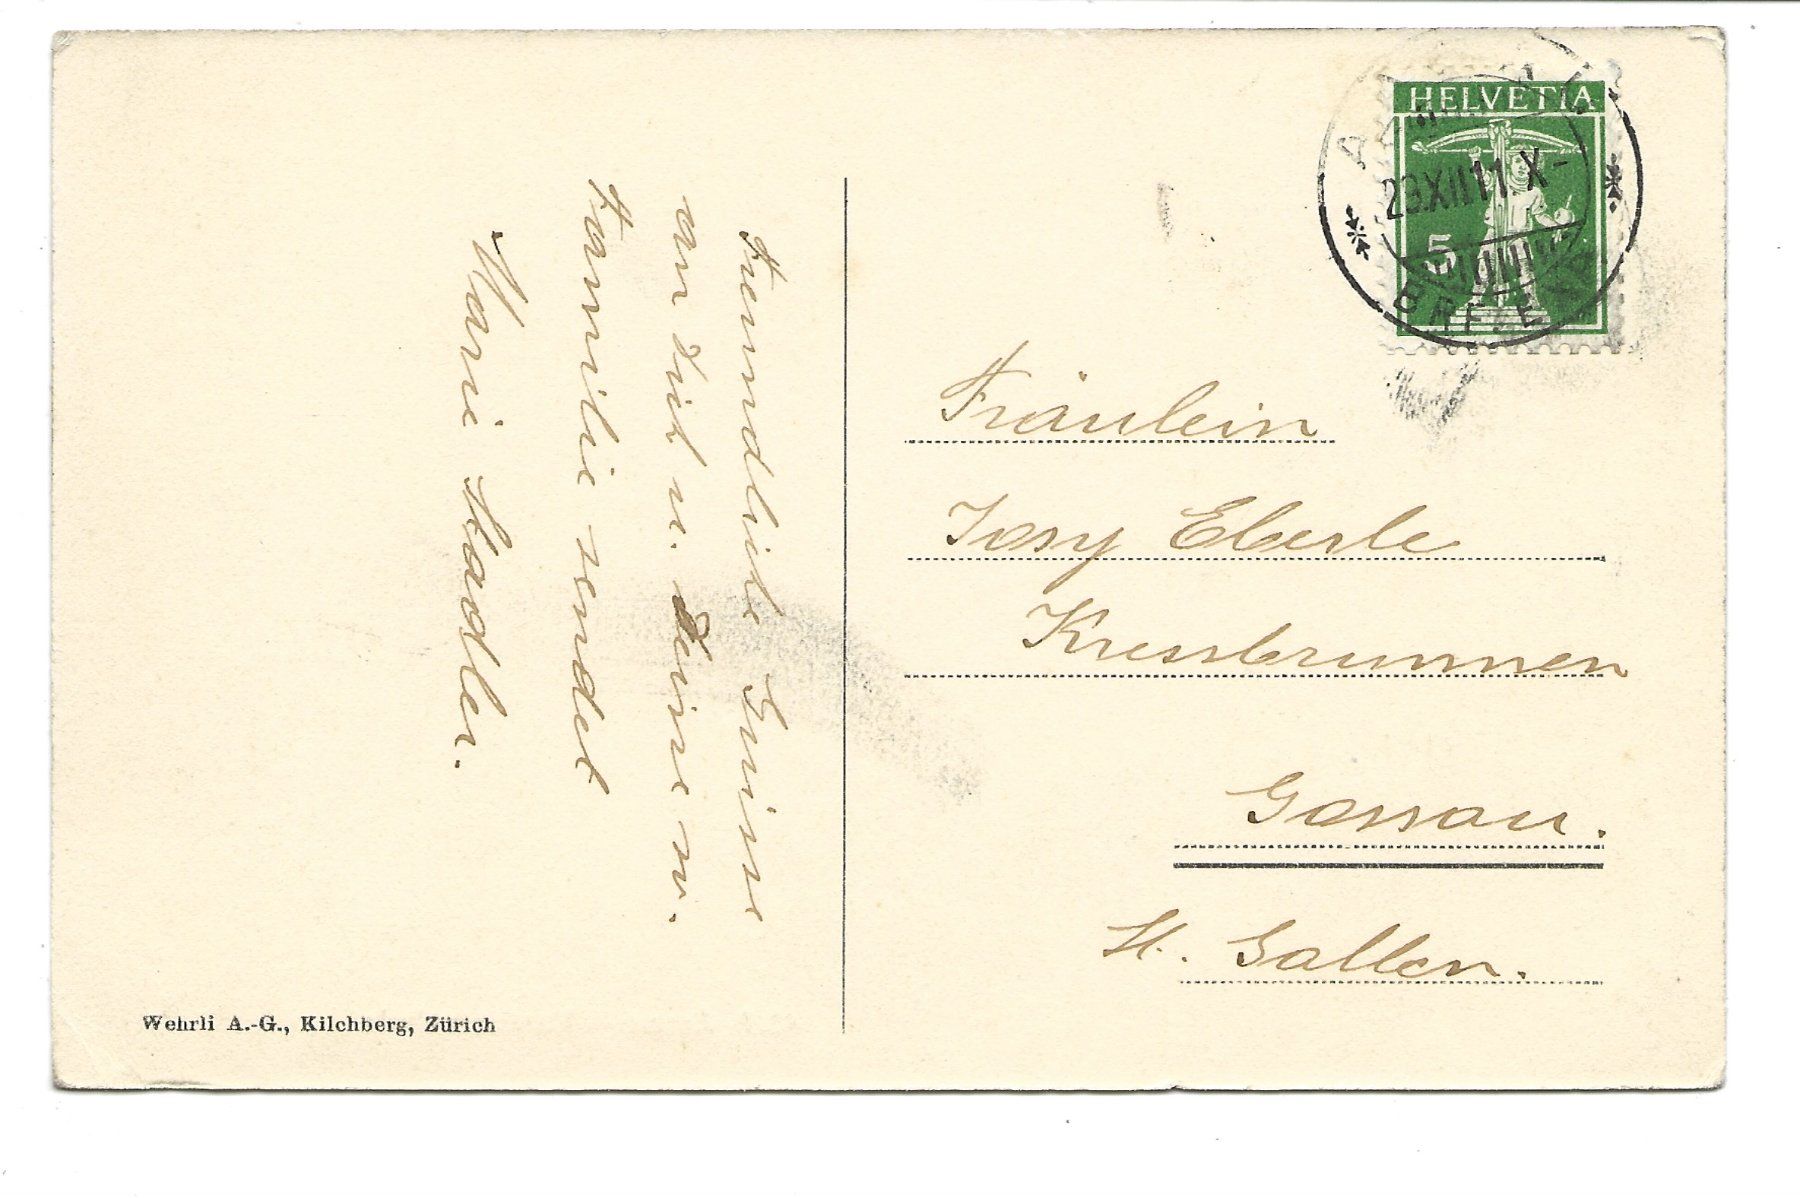 HELVETIA
5
29.XII.11.X-
Freundliche Grüsse
an dich u. deine w.
Familie sendet
Marie Stadler.
Fräulein
Josy Eberle
Kressbrunnen
Gossau.
St. Gallen.
Wehrli A.-G., Kilchberg, Zürich